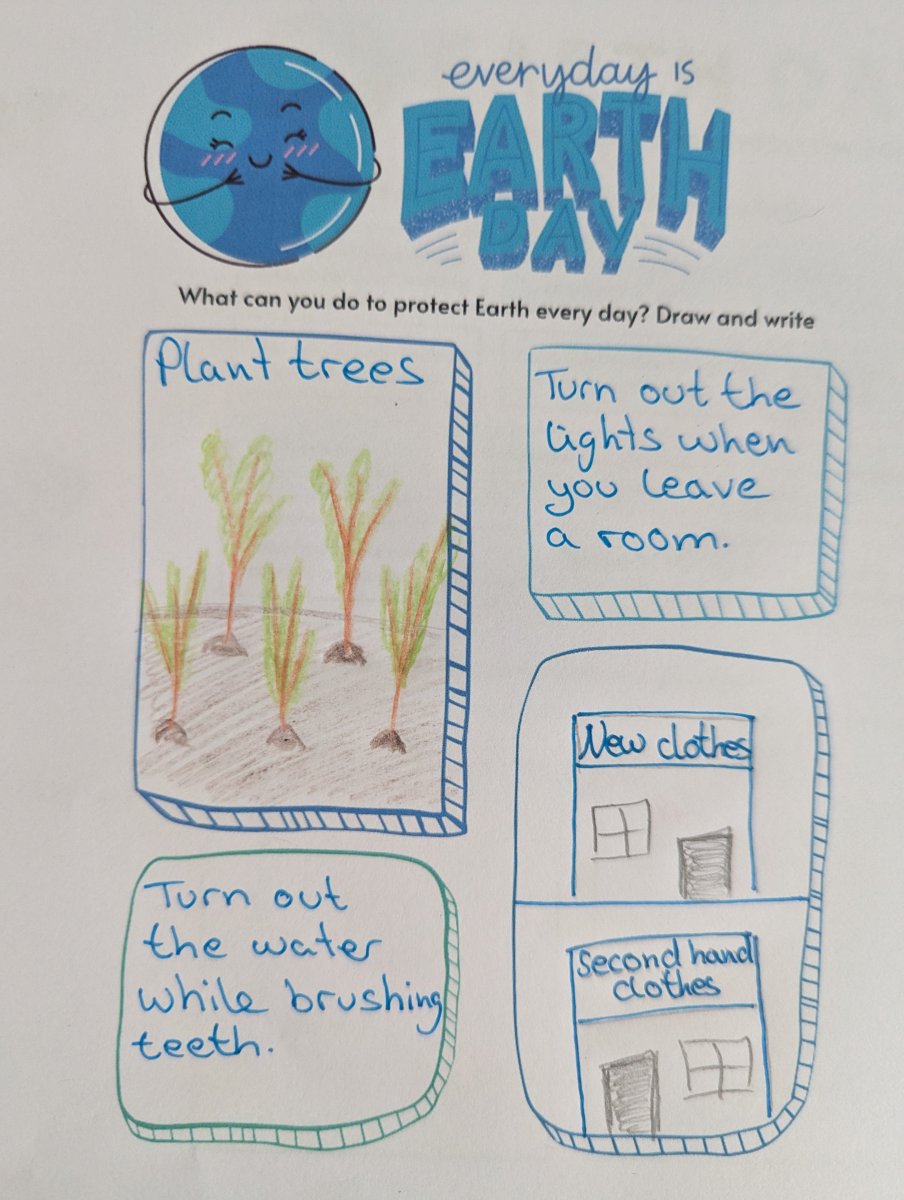 everyday is
EARTH
DAY
What can you do to protect Earth every day? Draw and write
Plant trees
Turn out the
lights when
you leave
a room.
New clothes
Second hand
clothes
Turn out
the water
while brushing
teeth.